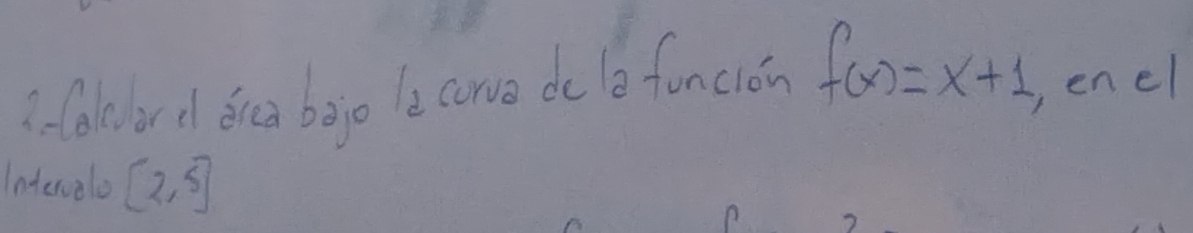 2-Calcular el área bajo la curva de la función f(x)=x+1, en el
Intervalo [2,5]